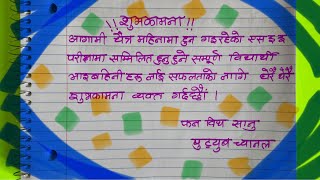 !! शुभकामना !!
आगामी चैत्र महिनामा हुन गइरहेको एस इ इ
परीक्षामा सम्मिलित हुनुहुने सम्पूर्ण विद्यार्थी
भाइ बहिनी हरू लाई सफलताको लागि धेरै धेरै
शुभकामना व्यक्त गर्दछौं ।
फन विथ सानु
युट्युब च्यानल